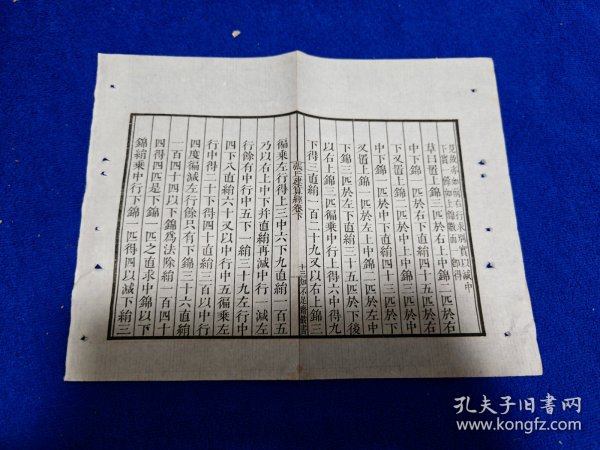 見故亦如前右行求別實以減中
下實餘如上錦數而一即得
草曰置上錦三匹於右上中錦二匹於右
中下錦一匹於右下直絹四十五匹於右
下又置上錦二匹於中上中錦三匹於中
中下錦一匹於中下直絹四十三匹於下
又置上錦一匹於左上中錦二匹於左中
下錦三匹於左下直絹三十五匹於下後
以右上錦三匹徧乘中行上得六中得九
下得三直絹一百二十九又以右上錦三
張丘建算經卷下
十三
知不足齋叢書
徧乘左行得上三中六下九直絹一百五
乃以右上中下并直絹再減中行一減左
行餘有中行中五下一絹三十九左行中
四下八直絹六十又以中行中五徧乘左
行中得二十下得四十直絹三百以中行
四度徧減左行餘只有下錦三十六直絹
一百四十四以下錦為法除絹一百四十
四得四匹是下錦一匹之直求中錦以下
錦絹乘中行下錦一匹得四以減下絹三
孔夫子旧书网
www.kongfz.com